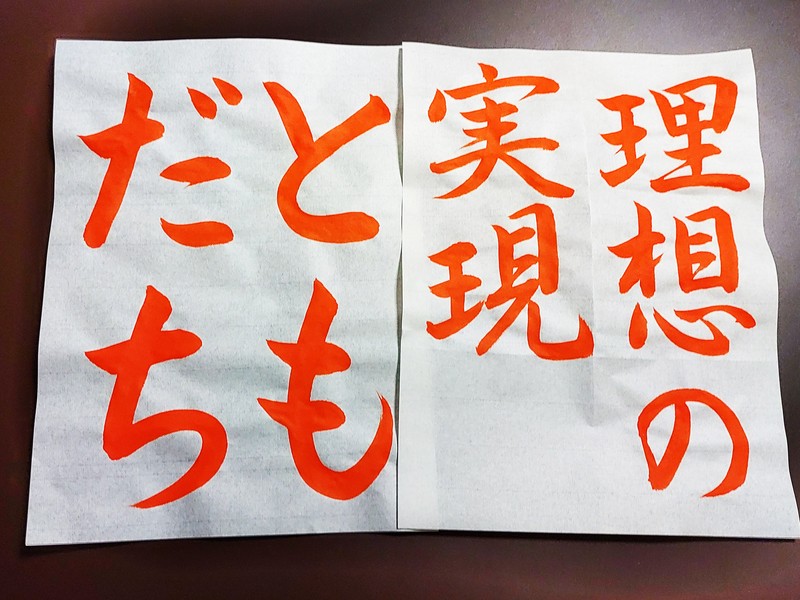 理想の
実現
とも
だち